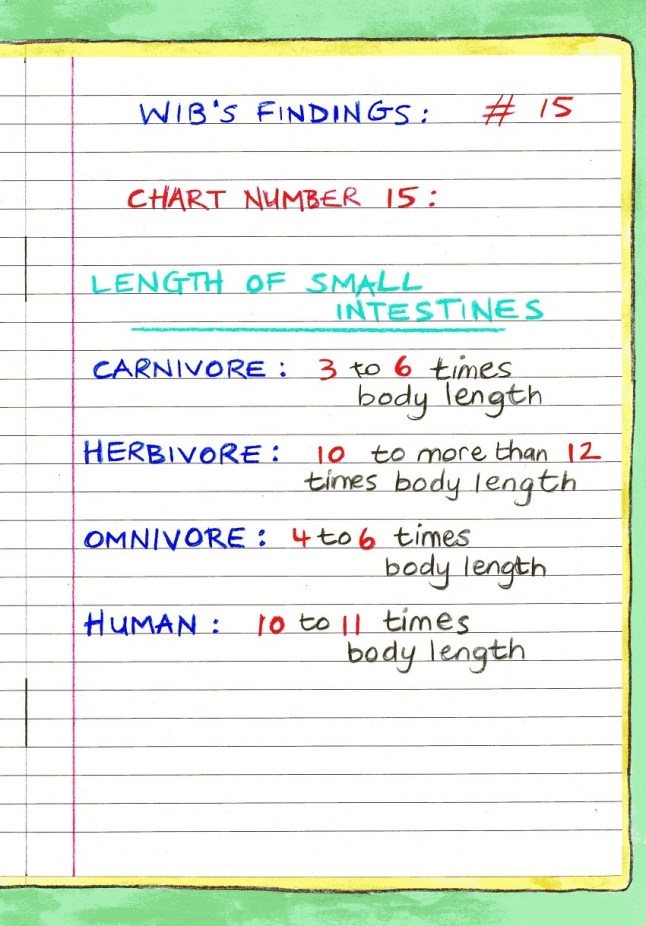 WIB'S FINDINGS: # 15
CHART NUMBER 15:
LENGTH OF SMALL
INTESTINES
CARNIVORE: 3 to 6 times
body length
HERBIVORE: 10 to more than 12
times body length
OMNIVORE: 4 to 6 times
body length
HUMAN: 10 to 11 times
body length